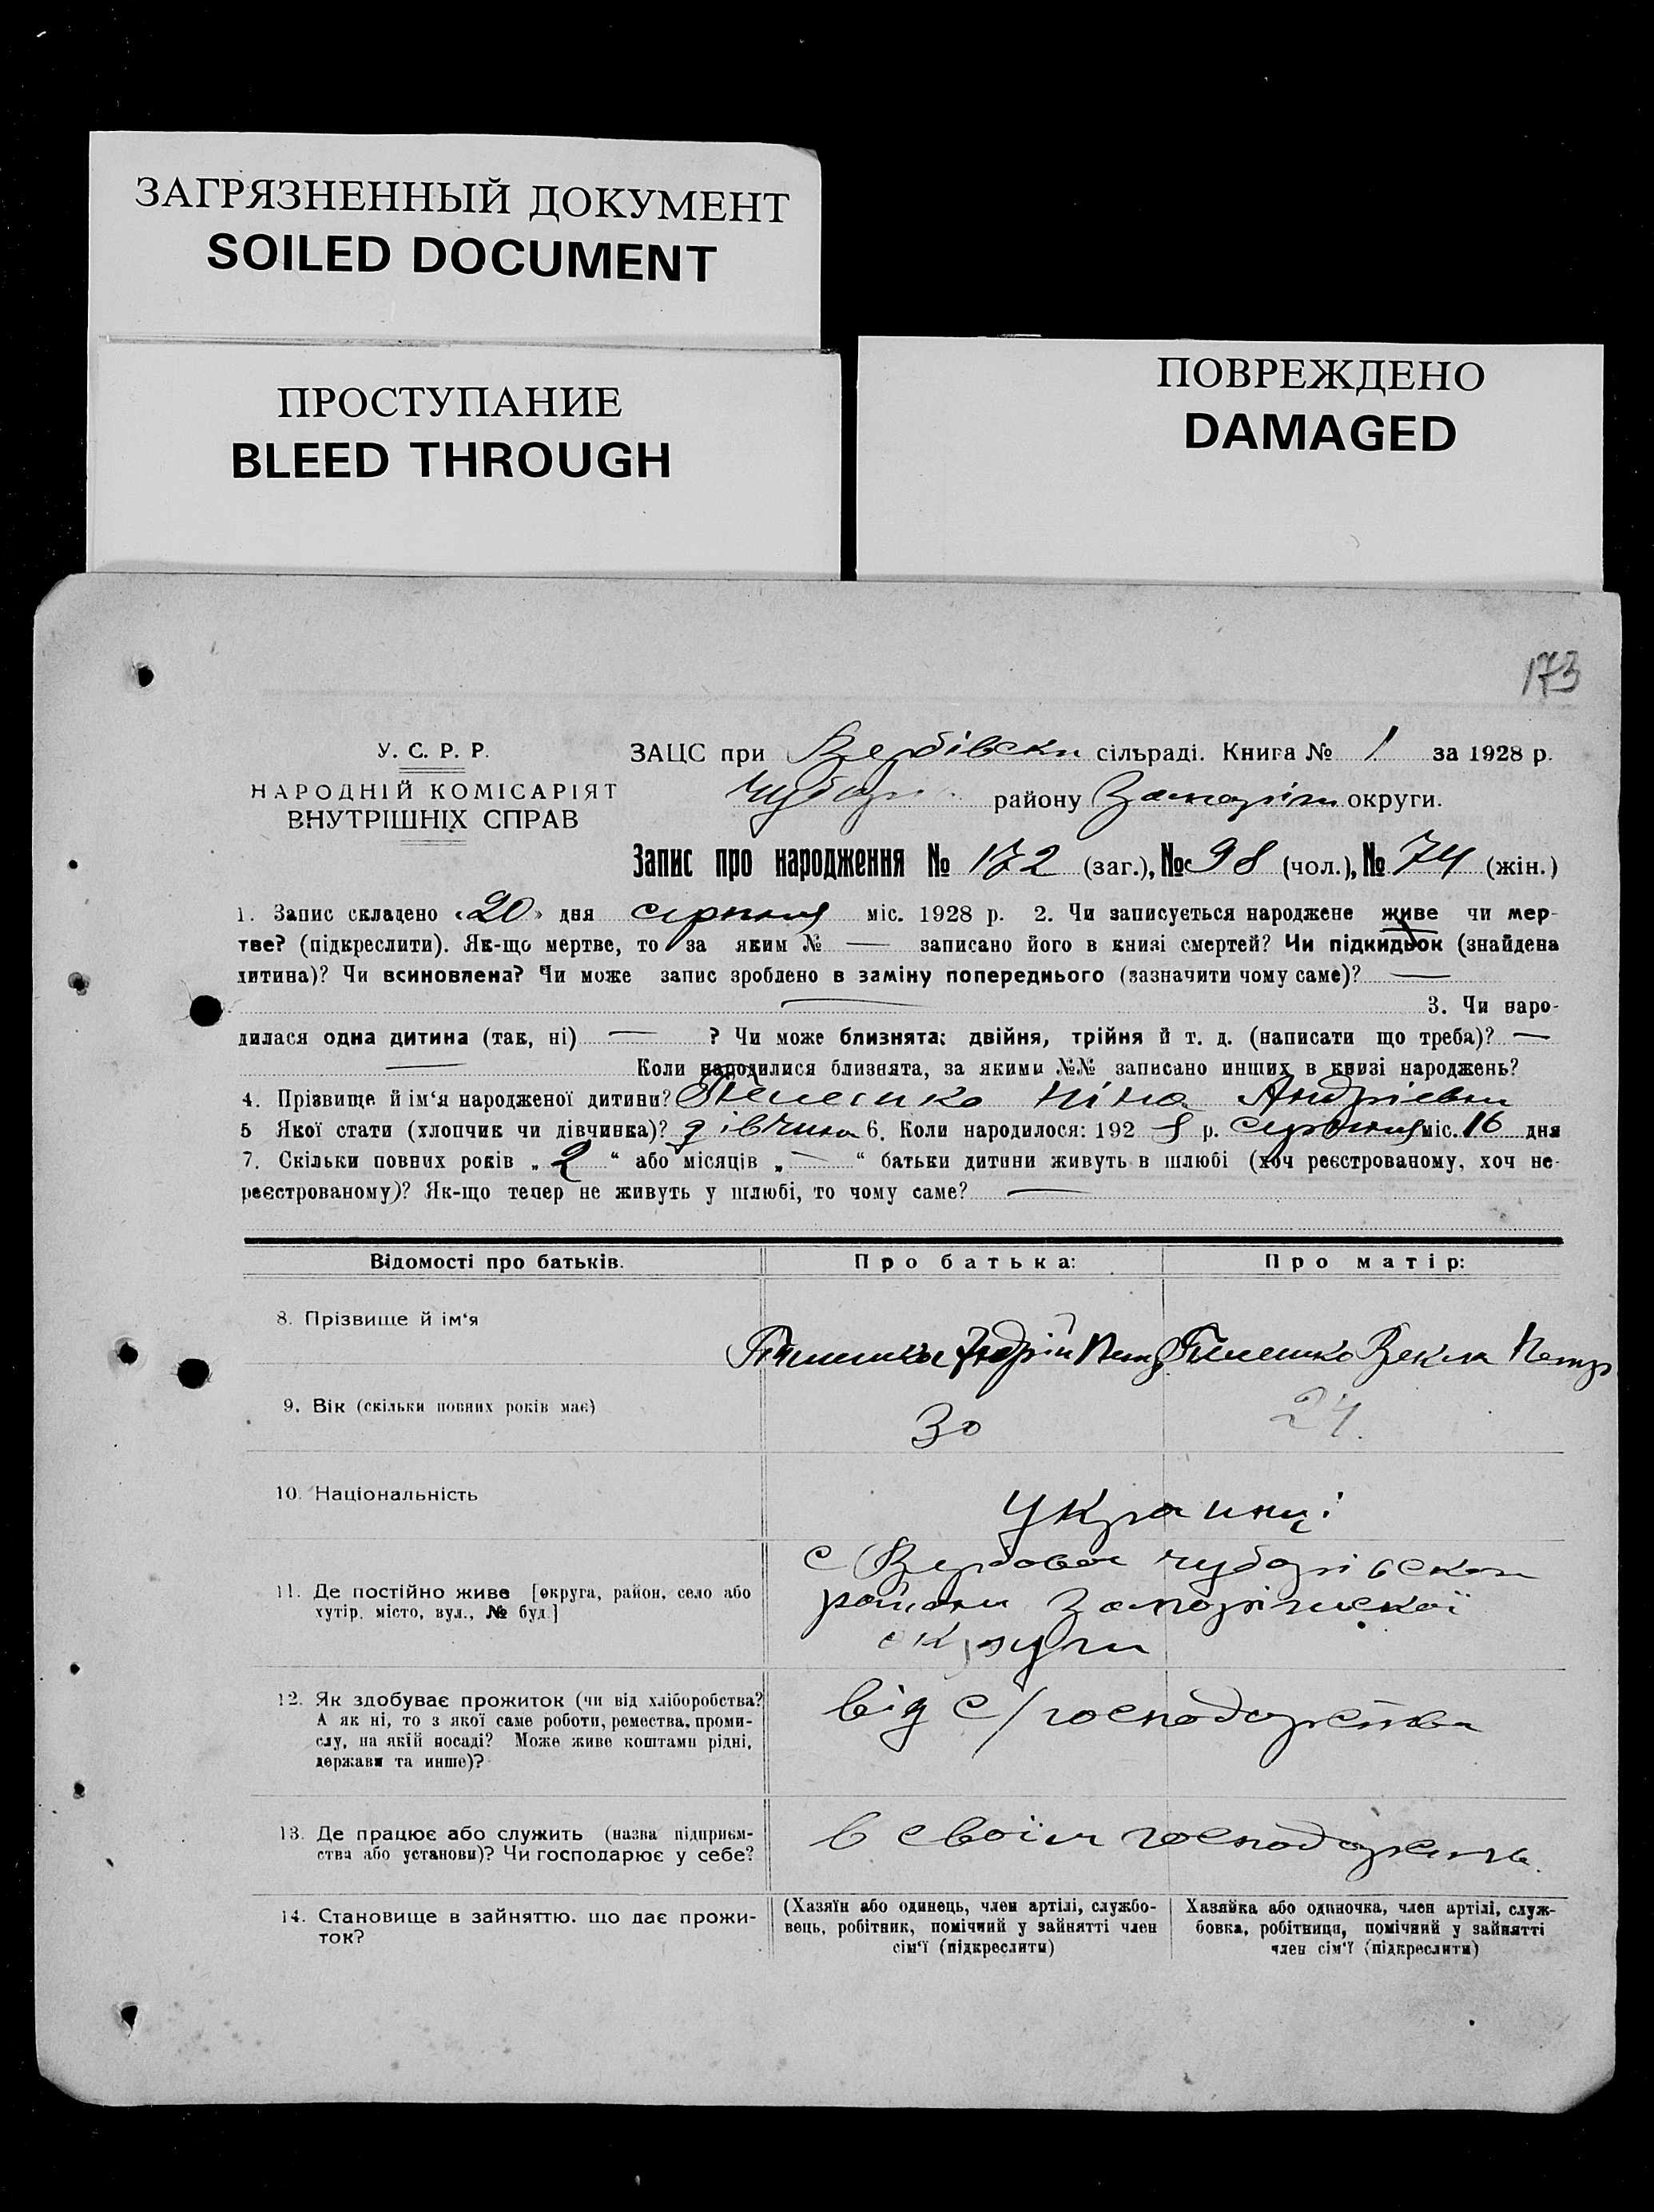 ЗАГРЯЗНЕННЫЙ ДОКУМЕНТ
SOILED DOCUMENT
ПРОСТУПАНИЕ
BLEED THROUGH
ПОВРЕЖДЕНО
DAMAGED
173
У. С. Р. Р.
НАРОДНІЙ КОМІСАРІЯТ
ВНУТРІШНІХ СПРАВ
ЗАЦС при Вербівскі сільраді. Книга № 1 за 1928 р.
Чубар району Запоріж округи.
Запис про народження № 172 (заг.), № 98 (чол.), № 74 (жін.)
1. Запис складено «20» дня серпня міс. 1928 р. 2. Чи записується народжене живе чи мер-
тве? (підкреслити). Як-що мертве, то за яким № — записано його в книзі смертей? Чи підкидьок (знайдена
дитина)? Чи всиновлена? Чи може запис зроблено в заміну попереднього (зазначити чому саме)? —
— 3. Чи наро-
дилася одна дитина (так, ні) — ? Чи може близнята: двійня, трійня й т. д. (написати що треба)? —
— Коли народилися близнята, за якими №№ записано инших в книзі народжень?
4. Прізвище й ім‘я народженої дитини? Ніна Андріевна
5 Якої стати (хлопчик чи дівчинка)? дівчина 6. Коли народилося: 1928 р. серпня міс. 16 дня
7. Скільки повних років „ 2 “ або місяців „ — “ батьки дитини живуть в шлюбі (хоч реєстрованому, хоч не-
реєстрованому)? Як-що тепер не живуть у шлюбі, то чому саме? —
Відомості про батьків. Про батька: Про матір:
8. Прізвище й ім‘я
Андрій Петр Векла Петр
9. Вік (скільки повних років має) 30 24.
10. Національність украинці
11. Де постійно живе [округа, район, село або
хутір, місто, вул., № буд.]
с Вербова чубарівскои
району Запоріжскої
округи
12. Як здобуває прожиток (чи від хліборобства?
А як ні, то з якої саме роботи, ремества, проми-
слу, на якій посаді? Може живе коштами рідні,
держави та инше)?
від с/господарства
13. Де працює або служить (назва підприєм-
ства або установи)? Чи господарює у себе?
в своїм господарств.
14. Становище в зайняттю, що дає прожи-
ток?
(Хазяїн або одинець, член артілі, службо-
вець, робітник, помічний у зайнятті член
сім‘ї (підкреслити)
Хазяйка або одиночка, член артілі, служ-
бовка, робітниця, помічний у зайнятті
член сім‘ї (підкреслити)